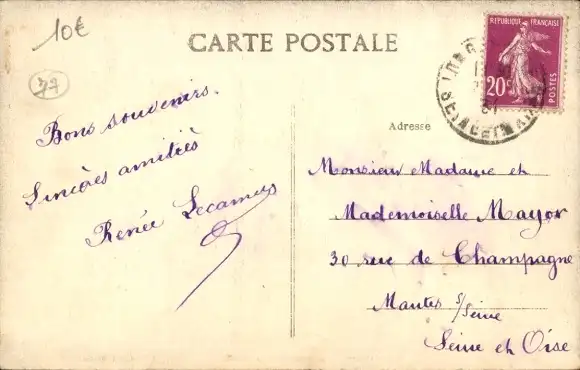 10€
CARTE POSTALE
REPUBLIQUE FRANÇAISE
20c
POSTES
77
Adresse
Bons souvenirs.
Sincères amitiés
Renée Lecamus
Monsieur Madame et
Mademoiselle Mayor
30 rue de Champagne
Mantes s/Seine
Seine et Oise